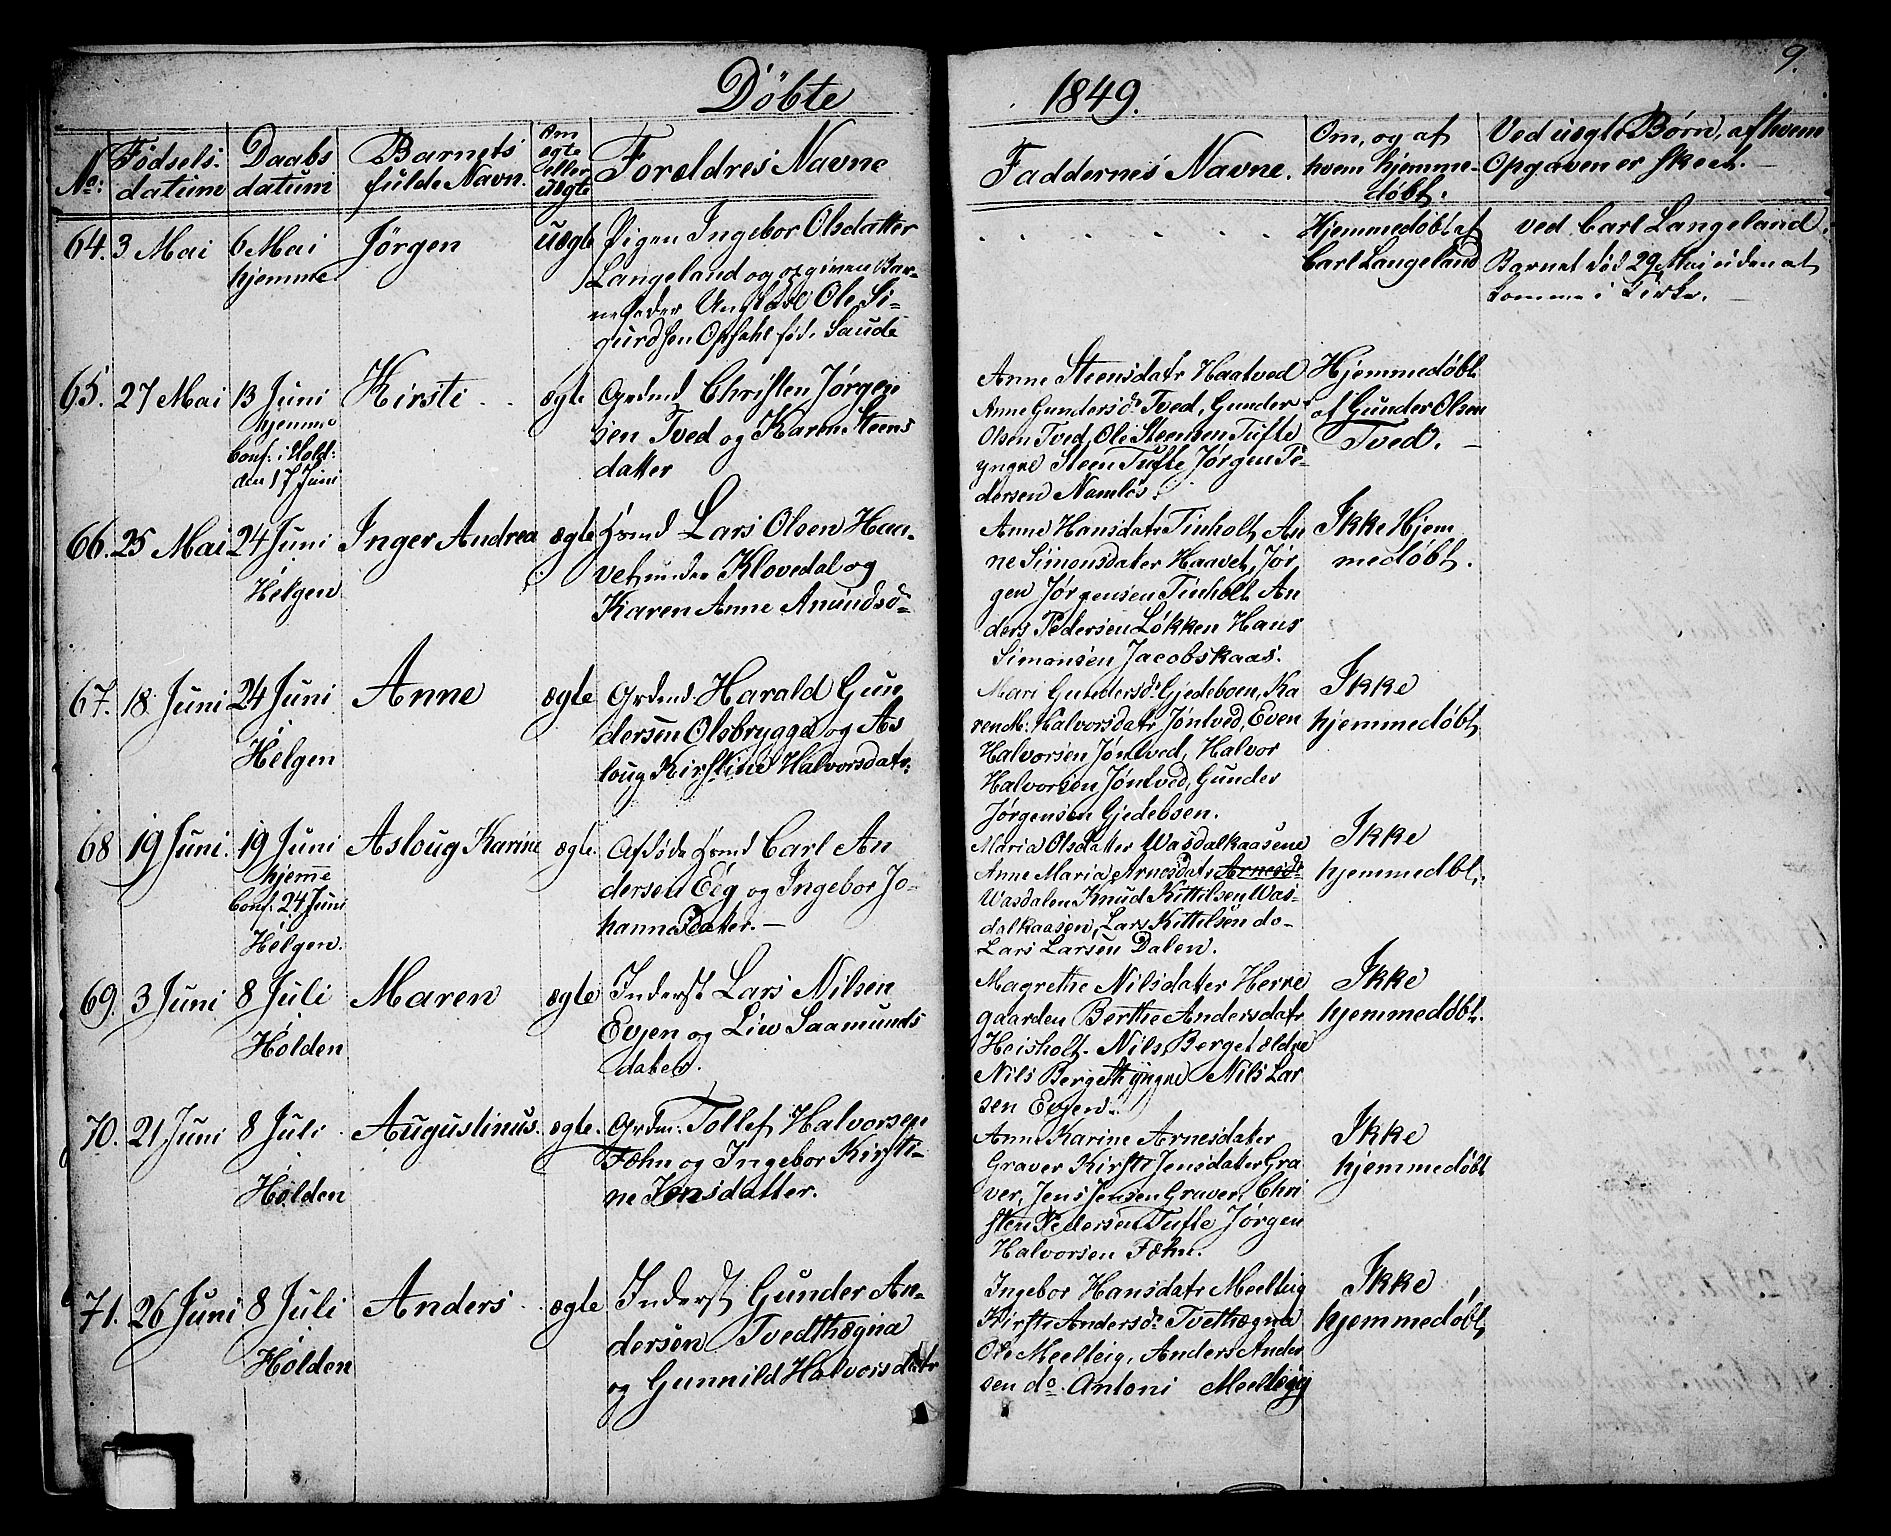 9.
Döbte 1849.
No: Födsels. datum
Daabs datum
Barnets fulde Navn.
Om ægte eller uægte
Forældres Navne
Faddernes Navne.
Om, og af hvem hjemme-döbt.
Ved uægte Børn, af hvem Opgaven er skeet.
64. 3 Mai
6 Mai
hjemme
Jörgen
uægte
Pigen Ingebor Olsdatter
Langeland og opgiven Bar-
nefader Ungkarl Ole Si-
gurdsen Opsahl fød. Saude
Hjemmedöbt af
Carl Langeland
ved Carl Langeland.
Barnet död 29 Mai uden at
komme i Kirke.
65. 27 Mai
13 Juni
hjemme
Conf: i Hold:
den 17 Juni
Kirsti
ægte
Grdmd Christen Jørgen
sen Tved og Karen Steens
datter
Anne Steensdatr Haatved
Anne Gundersd. Tved, Gunder
Olsen Tved, Ole Steensen Tufte
yngre Steen Tufte Jørgen Pe-
dersen Namløs.
Hjemmedöbt
af Gunder Olsen
Tved.
66. 25 Mai
24 Juni
Helgen
Inger Andrea
ægte
Hsmd Lars Olsen Haa-
vet under Klovedal og
Karen Anne Amundsd.
Anne Hansdatr Tinholt An
ne Simonsdater Haavet, Jør
gen Jørgensen Tinholt An
ders Pedersen Løkken Hans
Simonsen Jacobskaas.
Ikke Hjem
medøbt.
67. 18 Juni
24 Juni
Helgen
Anne
ægte
Grdmd Harald Gun
dersen Olsbrygge og As
loug Kirstine Halvorsdatr.
Mari Gundersd. Gjedeboen, Ka
ren M: Halvorsdatr Jöntved, Even
Halvorsen Jöntved, Halvor
Halvorsen Jöntved, Gunder
Jørgensen Gjedebøen.
Ikke
hjemmedøbt
68 19 Juni.
19 Juni
hjemme
Conf. 24 Juni
Helgen.
Asloug Karine
ægte.
Afdøde Hsmd Carl An
dersen Eeg og Ingebor Jo-
hannesdatter.
Maria Olsdatter Wasdalkaasene
Anne Maria Arnesdatr Arnesd.
Wasdalen Knud Kittilsen Was-
dalkaasen, Lars Kittilsen do-
Lars Larsen Dalen.
Ikke
hjemmedbt.
69. 3 Juni
8 Juli
Holden
Maren
ægte
Inderst Lars Nilsen
Evjen og Liv Saamunds
dater.
Magrethe Nilsdatter Herre
gaarden Berthe Andersdatr
Heisholt. Nils Berget ældre
Nils Berget yngre Nils Lar
sen Evjen.
Ikke
hjemmedøbt.
70. 21 Juni
8 Juli
Holden
Augustinus.
ægte.
Grdm: Tollef Halvorsen
Fæhn og Ingebor Kirsti-
ne Jensdatter.
Anne Karine Arnesdater
Graver Kirsti Jensdater Gra
ver, Jens Jensen Graver, Chri
sten Pedersen Tufte Jørgen
Halvorsen Fæhn.
Ikke
hjemmedøbt
71. 26 Juni
8 Juli
Holden
Anders
ægte
Inderst Gunder An-
dersen Tvedthægna
og Gunnild Halvorsdatr
Ingebor Hansdatr Meelteig
Kirsti Andersd. Tvethægna
Ole Meelteig, Anders Ander
sen do. Antoni Meelteig
Ikke
hjemmedøbt